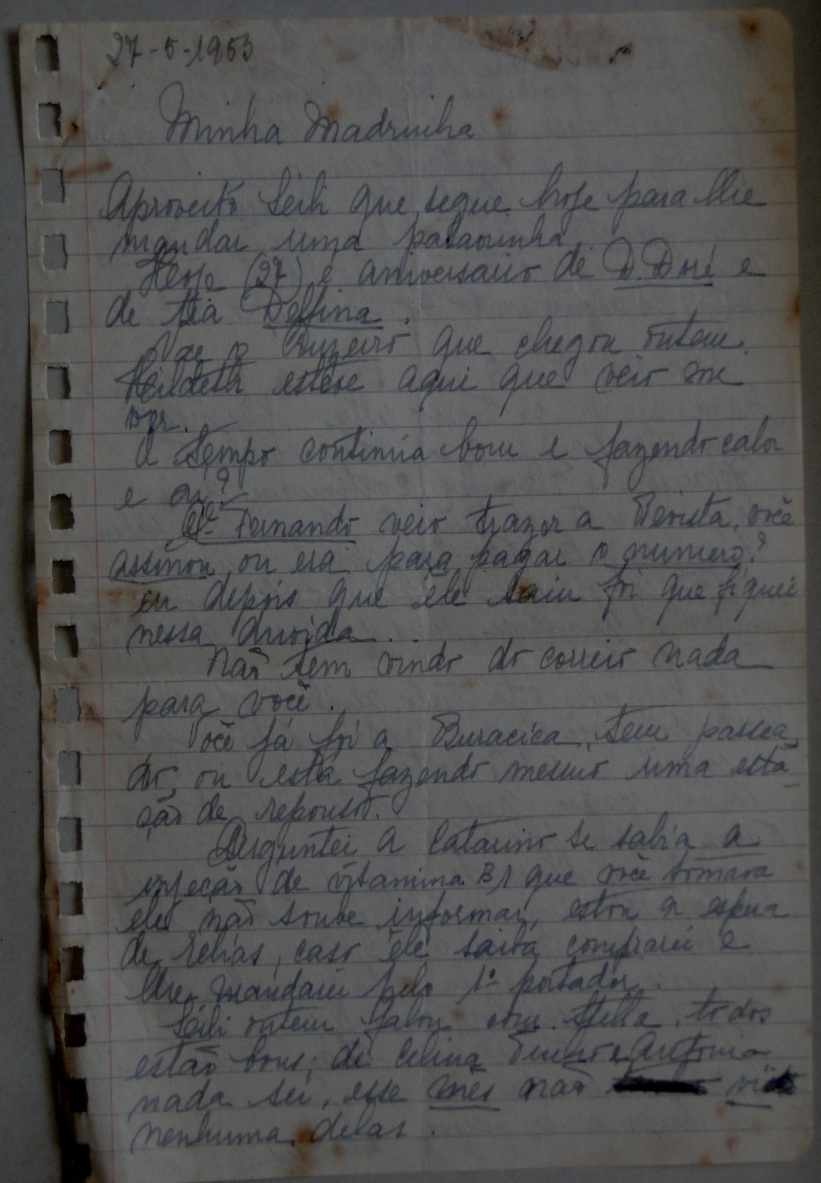 27-5-1953
Minha Madrinha
Aproveito Leili que segue hoje para lhe
mandar uma palavrinha
Hoje (27) é aniversario de D. Doré e
de tia Delfina.
Vae o Cruzeiro que chegou ontem.
esteve aqui que veio me
ver.
O tempo continúa bom e fazendo calor
e aí?
Sr. Fernando veio trazer a Revista, você
assinou ou era para pagar o numero?
eu depois que ele saiu foi que fiquei
nessa duvida...
Não tem vindo do correio nada
para você.
Você já foi a Buracica, tem passea
do, ou está fazendo mesmo uma esta-
ção de repouso.
Perguntei a Catarino se sabia a
injeção de vitamina B1 que você tomava
ele não soube informar, estou a espera
de, caso ele saiba comprarei e
lhe mandarei pelo 1º portador.
Leili ontem falou com Stella, todos
estão bons; de Celina e Antonia
nada sei, esse mês não vi
nenhuma delas.